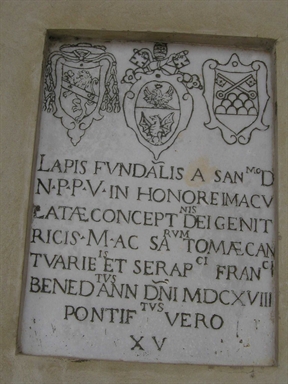 LAPIS FUNDALIS A SANMO D
N·P·P·V·IN HONORE IMACU
LATÆ CONCEPTNIS DEI GENIT
RICIS·M·AC SARUM TOMÆ CAN
TVARIEIS ET SERAPCI FRANCI
BENEDTUS ANN DÑI MDCXVIII
PONTIFTUS VERO
XV